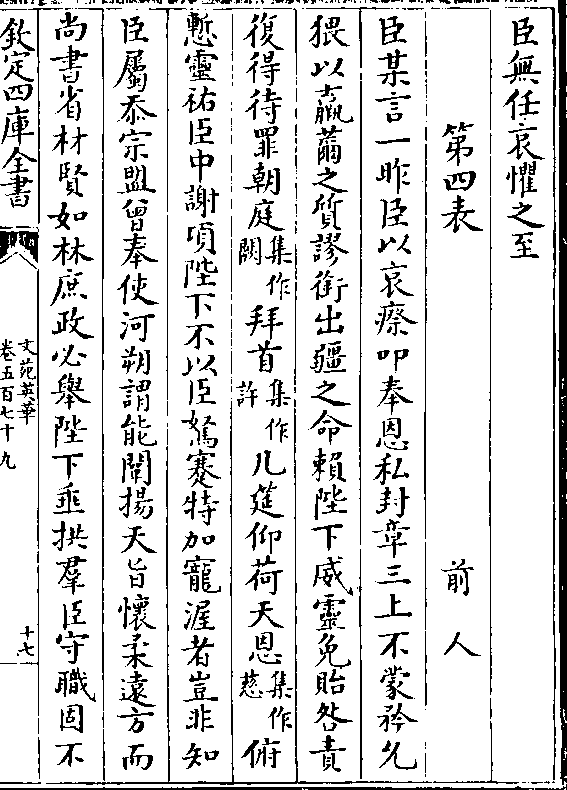 臣無任哀懼之至
第四表　前人
臣某言一昨臣以哀瘵叩奉恩私封章三上不蒙矜允
猥以羸薾之質謬銜出疆之命賴陛下威靈免貽咎責
復得待罪朝庭集作闕拜首集作許几筵仰荷天恩集作慈俯
慙靈祐臣中謝項陛下不以臣駑蹇特加寵渥者豈非知
臣屬忝宗盟曾奉使河朔謂能闡揚天旨懷柔遠方而
尚書省材賢如林庶政必舉陛下垂拱羣臣守職固不
欽定四庫全書
文苑英華
卷五百七十九
十七